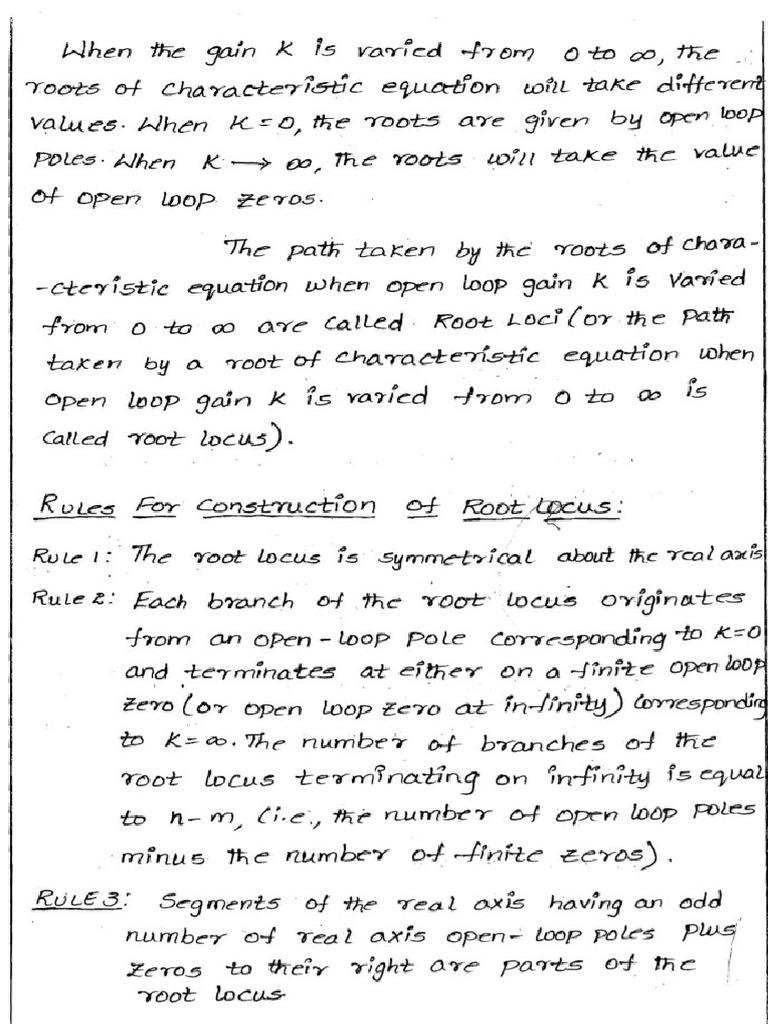 When the gain K is varied from 0 to ∞, the
roots of characteristic equation will take different
values. When K=0, the roots are given by open loop
poles. When K → ∞, the roots will take the value
of open loop zeros.
The path taken by the roots of chara-
-cteristic equation when open loop gain K is varied
from 0 to ∞ are called Root Loci (or the path
taken by a root of characteristic equation when
open loop gain K is varied from 0 to ∞ is
called root locus).
Rules For Construction of Root Locus:
Rule 1: The root locus is symmetrical about the real axis
Rule 2: Each branch of the root locus originates
from an open-loop pole corresponding to K=0
and terminates at either on a finite open loop
zero (or open loop zero at infinity) corresponding
to K=∞. The number of branches of the
root locus terminating on infinity is equal
to n-m, (i.e., the number of open loop poles
minus the number of finite zeros).
RULE 3: Segments of the real axis having an odd
number of real axis open-loop poles plus
zeros to their right are parts of the
root locus